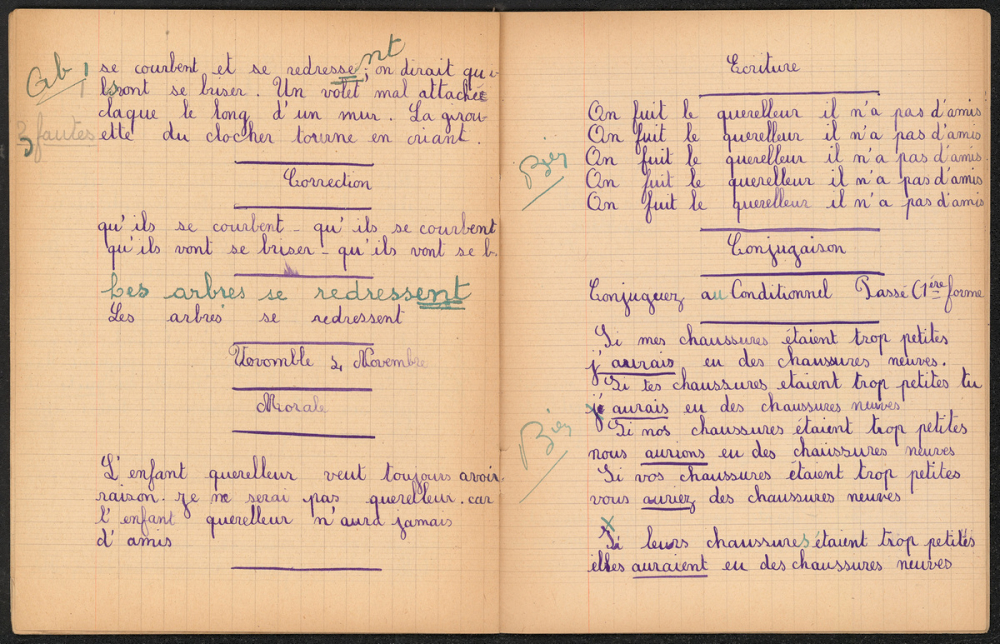 se courbent et se redressent, on dirait qu'i
ls vont se briser. Un volet mal attaché
claque le long d'un mur. La girou-
ette du clocher tourne en criant.
3 fautes
Correction
qu'ils se courbent - qu'ils se courbent
qu'ils vont se briser - qu'ils vont se b.
Les arbres se redressent
Les arbres se redressent
4 Novembre
Morale
L'enfant querelleur veut toujours avoir
raison. Je ne serai pas querelleur. car
l'enfant querelleur n'aura jamais
d'amis
Ecriture
On fuit le querelleur il n'a pas d'amis
On fuit le querelleur il n'a pas d'amis
On fuit le querelleur il n'a pas d'amis
On fuit le querelleur il n'a pas d'amis
On fuit le querelleur il n'a pas d'amis
Bien
Conjugaison
Conjuguez au Conditionnel Passé (1ère forme
Si mes chaussures étaient trop petites
j'aurais eu des chaussures neuves.
Si tes chaussures etaient trop petites tu
aurais eu des chaussures neuves
Si nos chaussures étaient trop petites
nous aurions eu des chaussures neuves
Bien
Si vos chaussures étaient trop petites
vous auriez des chaussures neuves
Si leurs chaussures étaient trop petites
elles auraient eu des chaussures neuves